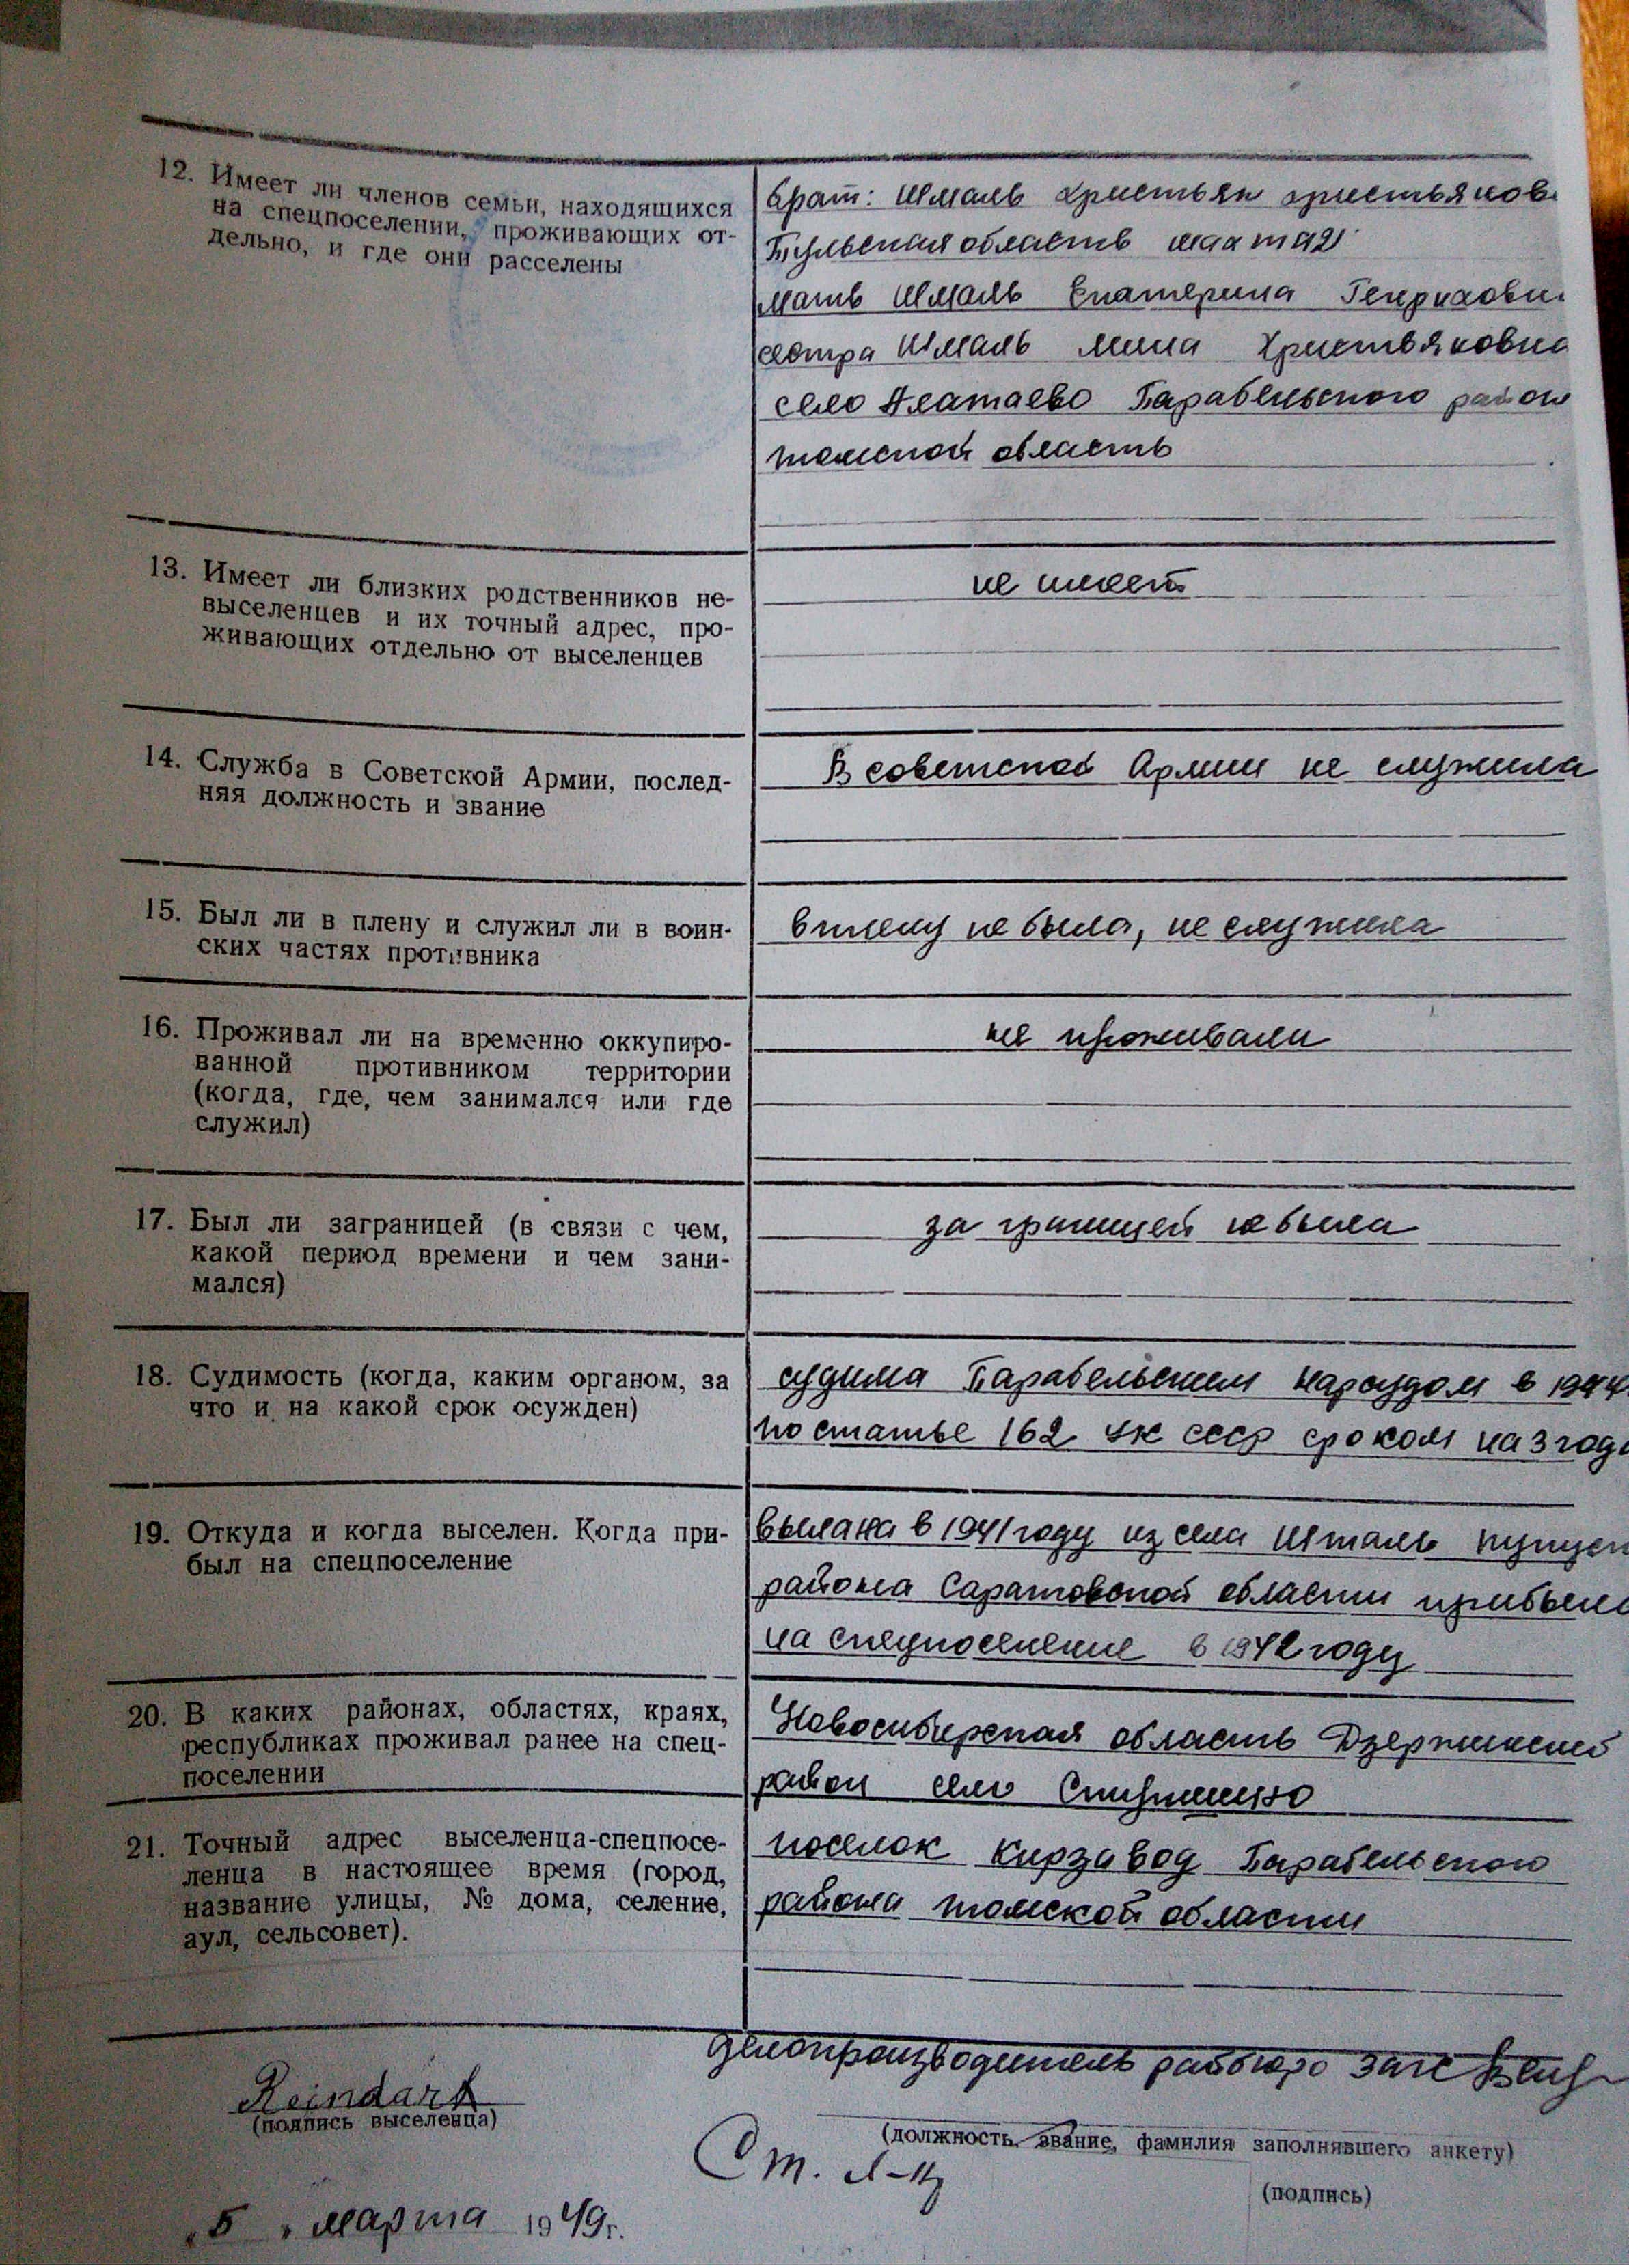 12. Имеет ли членов семьи, находящихся
на спецпоселении, проживающих от-
дельно, и где они расселены
брат: Шмаль Христьян христьянов
Тульская область шахта 21
мать Шмаль Екатерина Генриховн
сестра Шмаль мина Христьяновна
село Алатаево Парабельского район
томской область
13. Имеет ли близких родственников не-
выселенцев и их точный адрес, про-
живающих отдельно от выселенцев
не имеет
14. Служба в Советской Армии, послед-
няя должность и звание
В советской Армии не служила
15. Был ли в плену и служил ли в воин-
ских частях противника
в плену не была, не служила
16. Проживал ли на временно оккупиро-
ванной противником территории
(когда, где, чем занимался или где
служил)
не проживали
17. Был ли заграницей (в связи с чем,
какой период времени и чем зани-
мался)
за границей не была
18. Судимость (когда, каким органом, за
что и на какой срок осужден)
судима Парабельским нарсудом в 1944
по статье 162 ук ссср сроком на 3 года
19. Откуда и когда выселен. Когда при-
был на спецпоселение
в 1941 году из села Шталь
района Саратовской области прибыла
на спецпоселение в 1942 году
20. В каких районах, областях, краях,
республиках проживал ранее на спец-
поселении
Новосибирская область Дзержинский
район село
21. Точный адрес выселенца-спецпосе-
ленца в настоящее время (город,
название улицы, № дома, селение,
аул, сельсовет).
поселок Кирзавод Парабельского
района томской области
делопроизводитель райбюро загс
Reindart
(подпись выселенца)
(должность, звание, фамилия заполнявшего анкету)
Ст. л-т
(подпись)
„5„ марта 1949г.